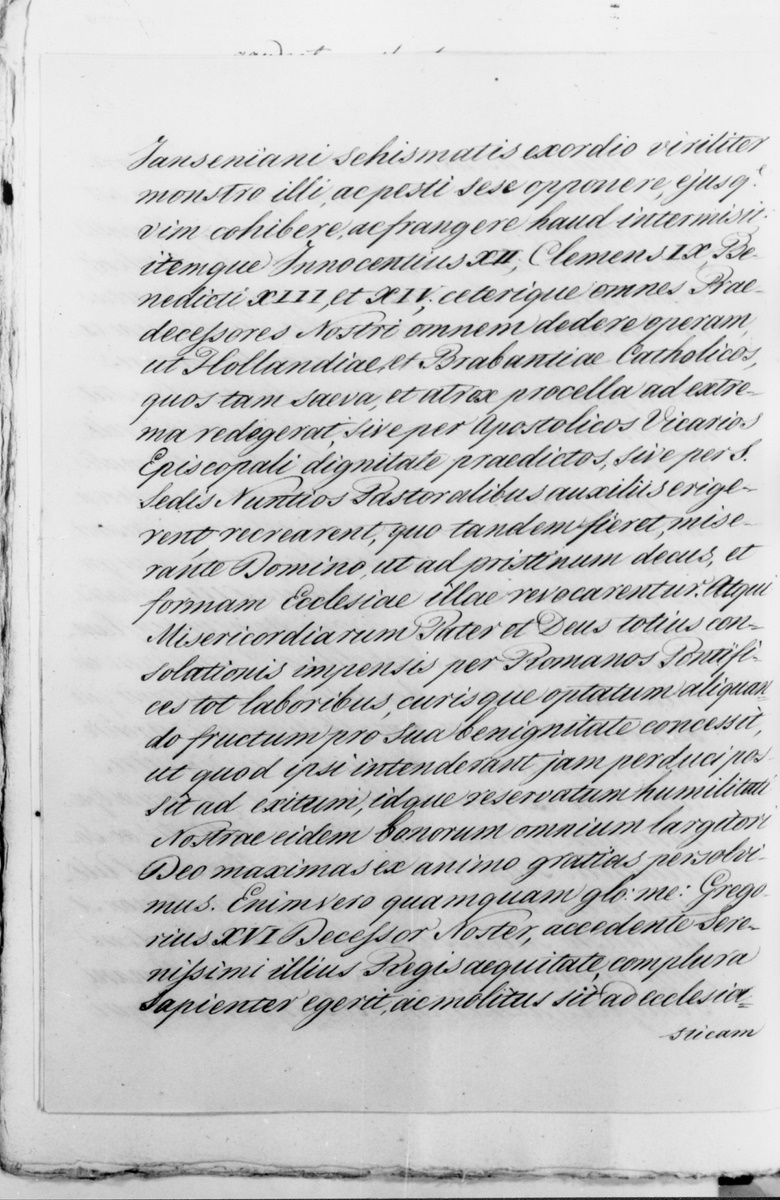 Janseniani schismatis exordio viriliter
monstro illi, ac pesti sese opponere, ejusq.e
vim cohibere, ac frangere haud intermisit:
itemque Innocentius XII, Clemens IX Be-
nedicti XIII, et XIV, ceterique omnes Prae-
decessores Nostri omnem dedere operam,
ut Hollandiae, et Brabantiae Catholicos,
quos tam saeva, et atrox procella ad extre-
ma redegerat, sive per Apostolicos Vicarios
Episcopali dignitate praedictos, sive per S.
Sedis Nuntios Pastoralibus auxiliis erige-
rent, recrearent, quo tandem fieret, mise-
rante Domino, ut ad pristinum decus, et
formam Ecclesiae illae revocarentur. Atqui
Misericordiarum Pater et Deus totius con-
solationis impensis per Romanos Pontifi-
ces tot laboribus, curisque optatum aliquan=
do fructum pro Sua benignitate concessit,
ut quod ipsi intenderant jam perduci pos-
sit ad exitum, idque reservatum humilitati
Nostrae eidem bonorum omnium largitori
Deo maximas ex animo gratias persolvi-
mus. Enimvero quamquam glo: me: Grego-
rius XVI Decessor Noster, accedente Sere-
nissimi illius Regis aequitate, complura
Sapienter egerit, ac molitus sit ad ecclesia=
sticam